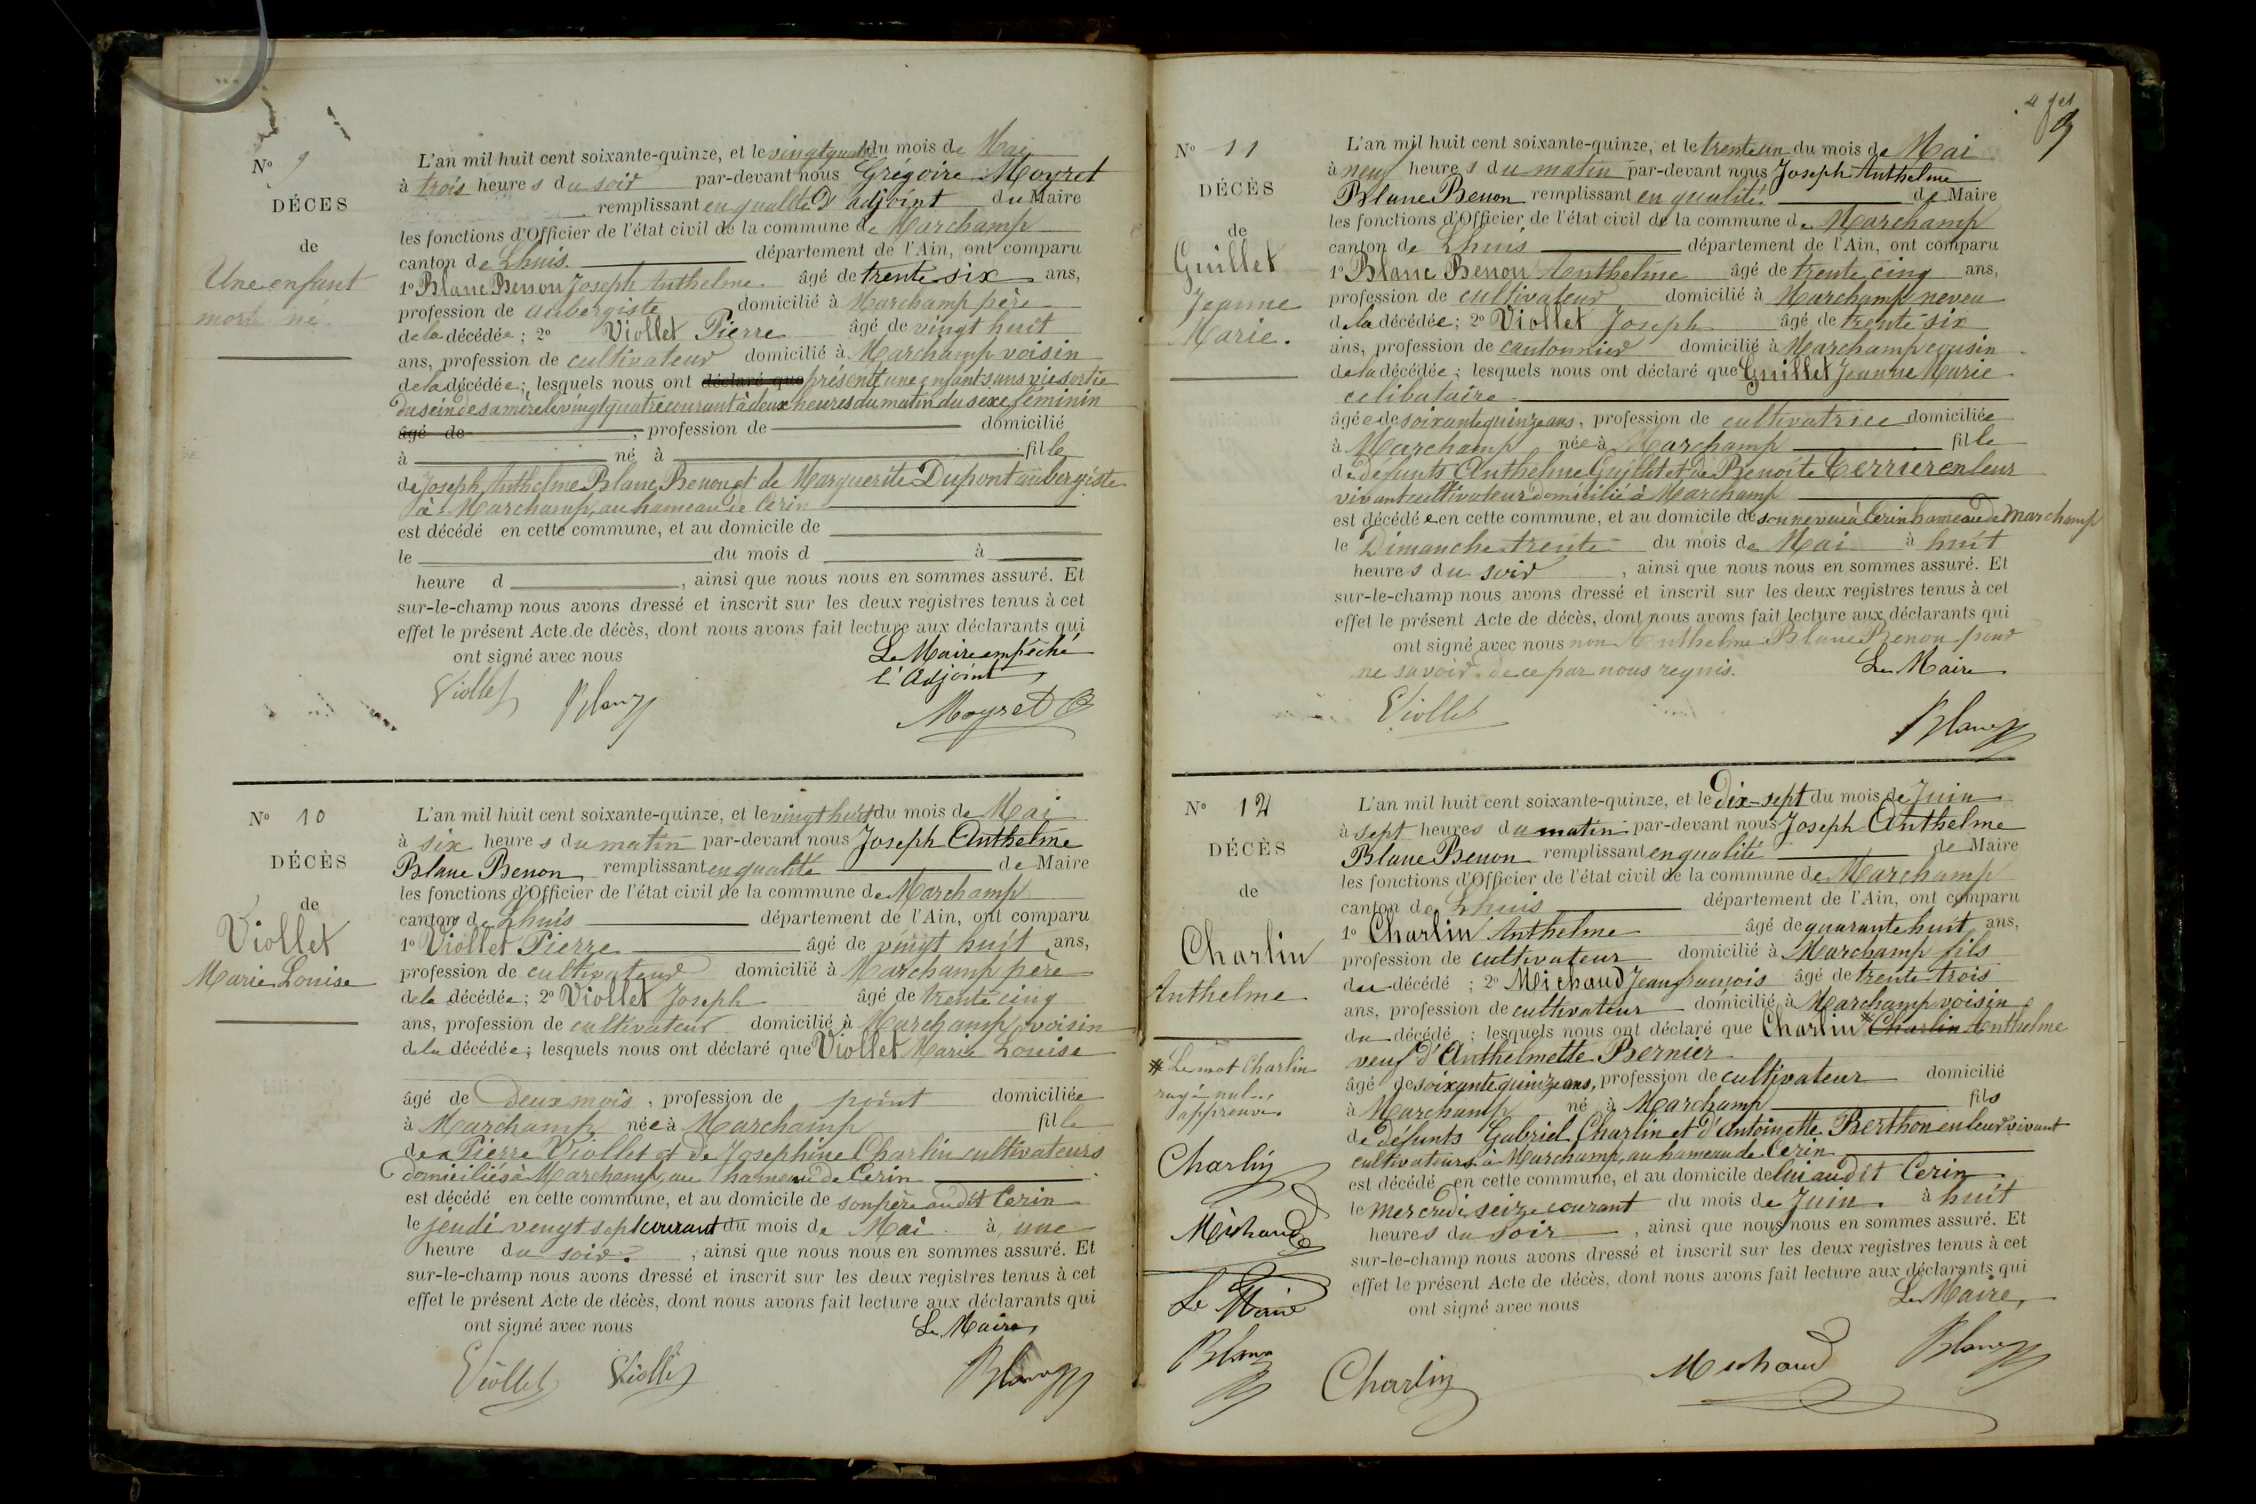 N° 9
DÉCES
de
Une enfant
mort né
L'an mil huit cent soixante-quinze, et le vingt quatre du mois de Mai
à trois heures du soir par-devant nous Grégoire Moyret
remplissant en qualité d'adjoint du Maire
les fonctions d'Officier de l'état civil de la commune de Marchamp
canton de Lhuis département de l'Ain, ont comparu
1° Blanc Benon Joseph Anthelme âgé de trente six ans,
profession de aubergiste domicilié à Marchamp père
de la décédée; 2° Viollet Pierre âgé de vingt huit
ans, profession de cultivateur domicilié à Marchamp voisin
de la décédée; lesquels nous ont déclaré que présenté une enfant sans vie sortie
du sein de sa mère le vingt quatre courant à deux heures du matin du sexe féminin
âgé de , profession de domicilié
à né à fille
de Joseph Anthelme Blanc Benon et de Marguerite Dupont aubergiste
à Marchamp, au hameau de Cerin
est décédé en cette commune, et au domicile de
le du mois d à
heure d , ainsi que nous nous en sommes assuré. Et
sur-le-champ nous avons dressé et inscrit sur les deux registres tenus à cet
effet le présent Acte de décès, dont nous avons fait lecture aux déclarants qui
ont signé avec nous
Le Maire empêché
l'Adjoint
Viollet Blanc Moyret
N° 10
DÉCÈS
de
Viollet
Marie Louise
L'an mil huit cent soixante-quinze, et le vingt huit du mois de Mai
à six heures du matin par-devant nous Joseph Anthelme
Blanc Benon remplissant en qualité de Maire
les fonctions d'Officier de l'état civil de la commune de Marchamp
canton de Lhuis département de l'Ain, ont comparu
1° Viollet Pierre âgé de vingt huit ans,
profession de cultivateur domicilié à Marchamp père
de la décédée; 2° Viollet Joseph âgé de trente cinq
ans, profession de cultivateur domicilié à Marchamp, voisin
de la décédée; lesquels nous ont déclaré que Viollet Marie Louise
âgé de deux mois, profession de point domiciliée
à Marchamp née à Marchamp fille
de Pierre Viollet et de Josephine Charlin cultivateurs
domiciliés à Marchamp, au hameau de Cerin
est décédé en cette commune, et au domicile de son père au dit Cerin
le jeudi vingt sept courant du mois de Mai à une
heure du soir , ainsi que nous nous en sommes assuré. Et
sur-le-champ nous avons dressé et inscrit sur les deux registres tenus à cet
effet le présent Acte de décès, dont nous avons fait lecture aux déclarants qui
ont signé avec nous
Le Maire,
Viollet Viollet Blanc
N° 11
DÉCÈS
de
Guillet
Jeanne
Marie.
L'an mil huit cent soixante-quinze, et le trente un du mois de Mai
à neuf heures du matin par-devant nous Joseph Anthelme
Blanc Benon remplissant en qualité de Maire
les fonctions d'Officier de l'état civil de la commune de Marchamp
canton de Lhuis département de l'Ain, ont comparu
1° Blanc Benon Anthelme âgé de trente cinq ans,
profession de cultivateur domicilié à Marchamp neveu
de la décédée; 2° Viollet Joseph âgé de trente-six
ans, profession de cantonnier domicilié à Marchamp cousin
de la décédée; lesquels nous ont déclaré que Guillet Jeanne Marie
célibataire
âgée de soixante quinze ans, profession de cultivatrice domiciliée
à Marchamp née à Marchamp fille
de défunts Anthelme Guillet et de Benoite Terrier en leur
vivant cultivateur domicilié à Marchamp
est décédée en cette commune, et au domicile de son neveu à Cerin hameau de Marchamp
le Dimanche trente du mois de Mai à huit
heures du soir , ainsi que nous nous en sommes assuré. Et
sur-le-champ nous avons dressé et inscrit sur les deux registres tenus à cet
effet le présent Acte de décès, dont nous avons fait lecture aux déclarants qui
ont signé avec nous non Anthelme Blanc Benon pour
ne savoir de ce par nous requis.
Le Maire
Viollet Blanc
N° 12
DÉCÈS
de
Charlin
Anthelme
* Le mot Charlin
rayé nul
approuvé
Charlin
Michaud
Le Maire
Blanc
L'an mil huit cent soixante-quinze, et le Dix-sept du mois de Juin
à sept heures du matin par-devant nous Joseph Anthelme
Blanc Benon remplissant en qualité de Maire
les fonctions d'Officier de l'état civil de la commune de Marchamp
canton de Lhuis département de l'Ain, ont comparu
1° Charlin Anthelme âgé de quarante huit ans,
profession de cultivateur domicilié à Marchamp fils
du décédé ; 2° Michaud Jean françois âgé de trente-trois
ans, profession de cultivateur domicilié à Marchamp voisin
du décédé ; lesquels nous ont déclaré que Charlin * Charlin Anthelme
veuf d'Anthelmette Bernier
âgé de soixante quinze ans, profession de cultivateur domicilié
à Marchamp né à Marchamp fils
de défunts Gabriel Charlin et d'Antoinette Berthon en leur vivant
cultivateurs à Marchamp, au hameau de Cerin
est décédé en cette commune, et au domicile de lui au dit Cerin
le mercredi seize courant du mois de Juin à huit
heures du soir , ainsi que nous nous en sommes assuré. Et
sur-le-champ nous avons dressé et inscrit sur les deux registres tenus à cet
effet le présent Acte de décès, dont nous avons fait lecture aux déclarants qui
ont signé avec nous
Le Maire,
Charlin Michaud Blanc